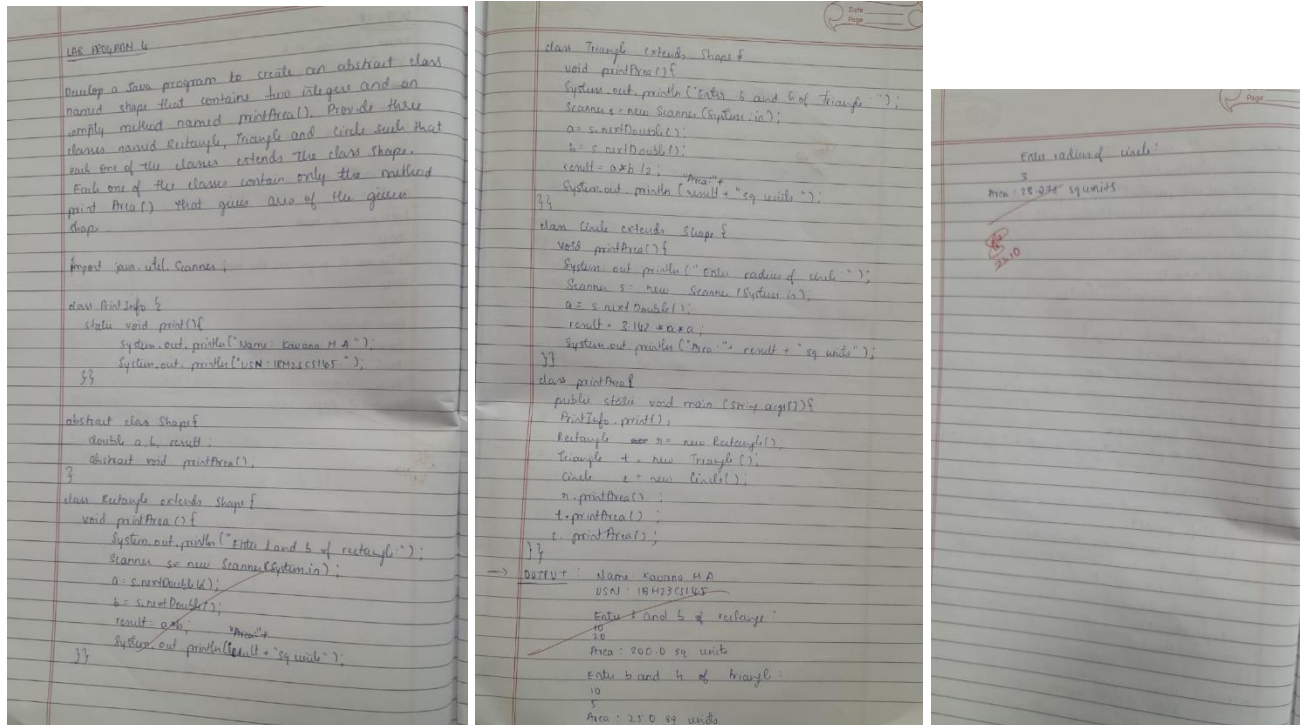 LAB PROGRAM 4
Develop a Java program to create an abstract class
named shape that contains two integers and an
empty method named printArea(). Provide three
classes named Rectangle, Triangle and Circle such that
each one of the classes extends the class Shape.
Each one of the classes contain only the method
print Area() that gives area of the given
shape.
import java.util.Scanner;
class PrintInfo {
static void print(){
System.out.println("Name: Kavana M A");
System.out.println("USN: 1BM23CS145");
}}
abstract class Shape{
double a,b, result;
abstract void printArea();
}
class Rectangle extends Shape{
void printArea(){
System.out.println("Enter l and b of rectangle:");
Scanner s= new Scanner(System.in);
a= s.nextDouble();
b= s.nextDouble();
result= a*b;
System.out.println("Area:"+ result + "sq units");
}}
Date
Page
class Triangle extends Shape{
void printArea(){
System.out.println("Enter b and h of Triangle:");
Scanner s= new Scanner(System.in);
a= s.nextDouble();
b= s.nextDouble();
result= a*b/2;
System.out.println("Area:"+ result + "sq units");
}}
class Circle extends Shape{
void printArea(){
System.out.println("Enter radius of circle:");
Scanner s= new Scanner(System.in);
a= s.nextDouble();
result= 3.142*a*a;
System.out.println("Area:"+ result + "sq units");
}}
class printArea{
public static void main (String args[]){
PrintInfo.print();
Rectangle r= new Rectangle();
Triangle t= new Triangle();
Circle c= new Circle();
r.printArea();
t.printArea();
c.printArea();
}}
→ OUTPUT: Name: Kavana M A
USN: 1BM23CS145
Enter l and b of rectangle:
10
20
Area: 200.0 sq units
Enter b and h of triangle:
10
5
Area: 25.0 sq units
Page
Enter radius of circle:
3
Area: sq units